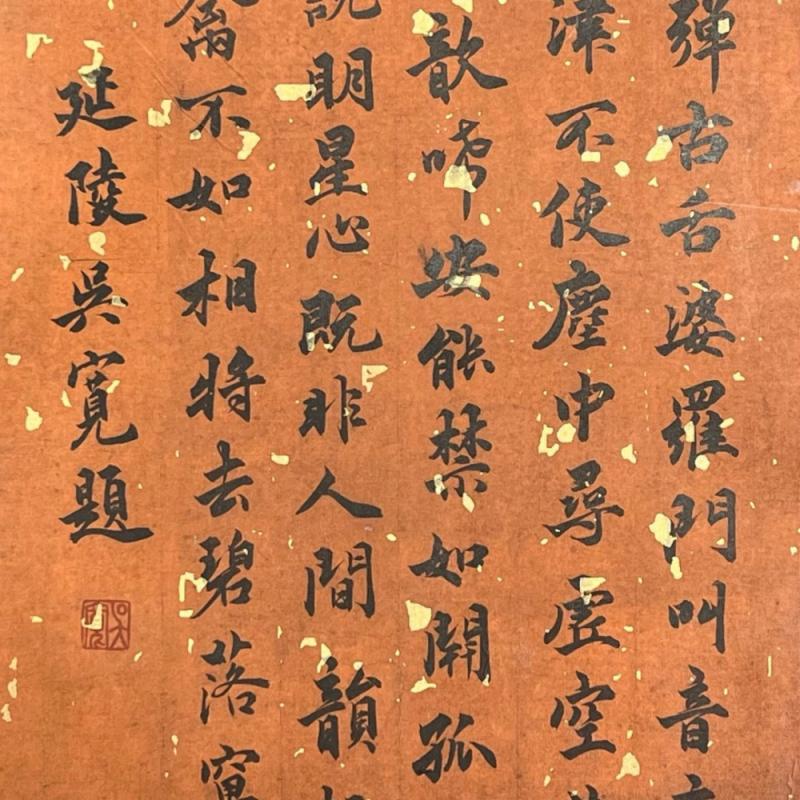 彈古舌婆羅門叫音
津不使塵中尋虛空
歆唏安能禁如聞孤
說明星心既非人間韻
禽不如相將去碧落窠
延陵吳寬題